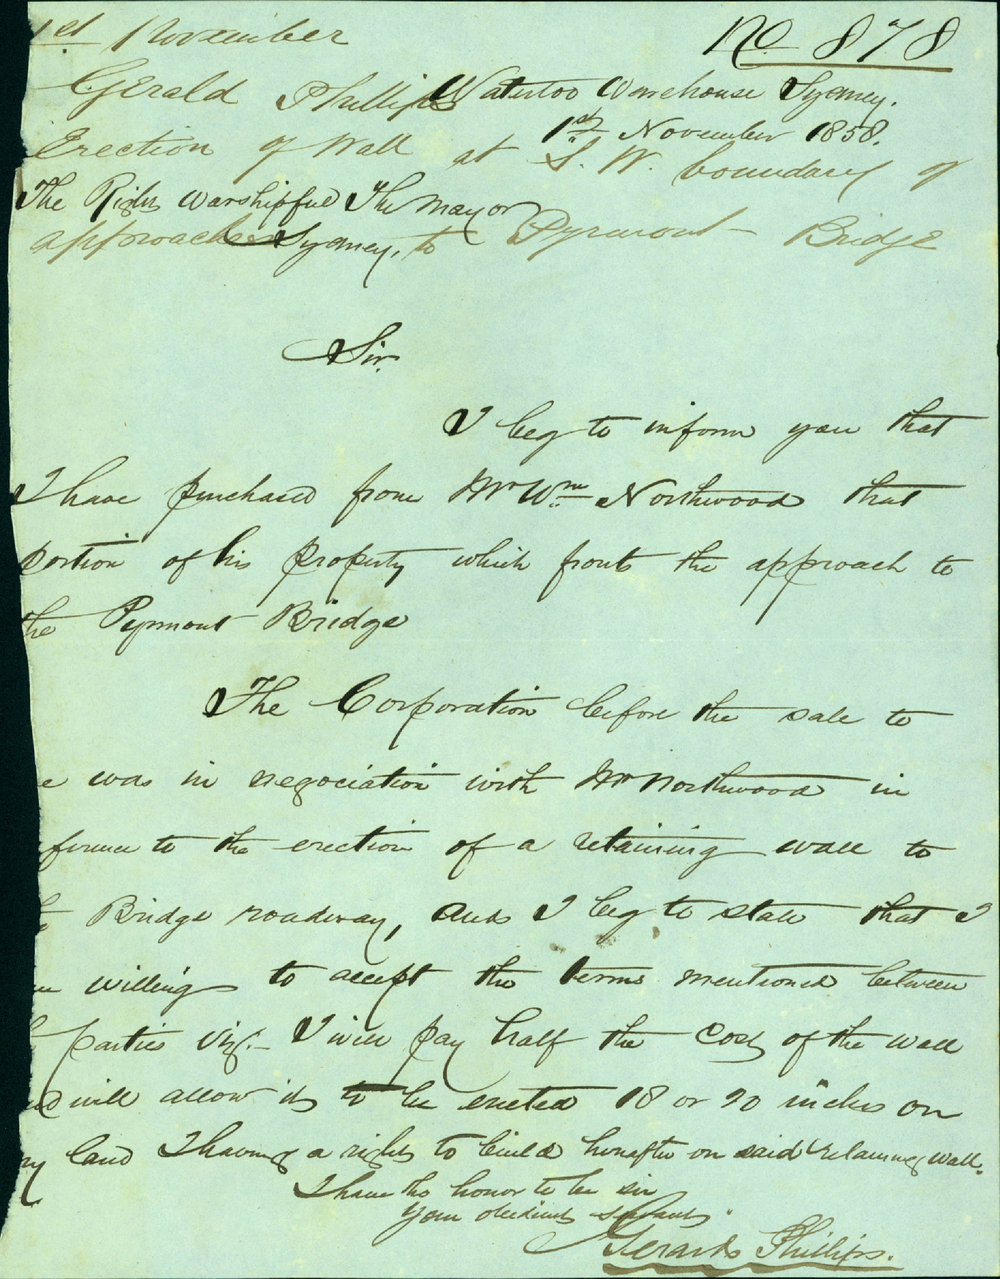 1st November
No 878
Gerald Phillips
Waterloo Warehouse Sydney.
1st November 1858.
Erection of Wall at S. W. boundary of
The Right Worshipful The Mayor
approaches to Pyrmont Bridge
Sydney.
Sir.
I beg to inform you that
I have purchased from Mr Wm Northwood that
portion of his property which fronts the approach to
the Pyrmont Bridge
The Corporation before the sale to
e was in negociation with Mr Northwood in
ference to the erection of a retaining wall to
Bridge roadway, and I beg to state that I
willing to accept the terms mentioned between
parties viz.- I will pay half the cost of the wall
and will allow it to be erected 18 or 20 inches on
my land I having a right to build hereafter on said retaining wall.
I have the honor to be Sir
Your obedient Servant
Gerard Phillips.